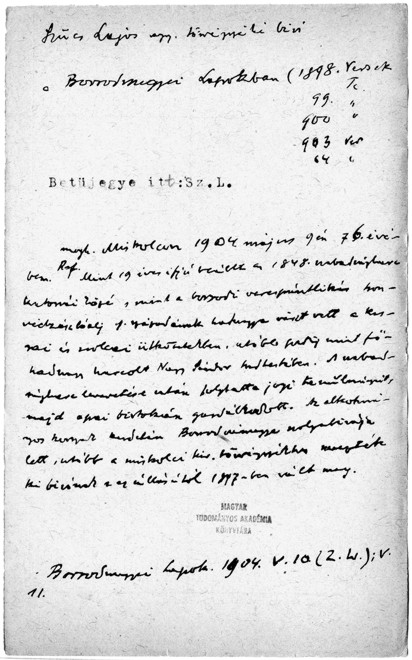 Szűcs Lajos ny. törvényszéki biró
Borsodmegyei Lapokban (1898. Versek
99. Tc
900 "
903 Vers
04 "
Betűjegye itt:Sz.L.
megh. Miskolcon 1904 május 9én 76. évé-
ben. Ref. Mint 19 éves ifjú került az 1848. szabadságharc
katonái közé, mint a borsodi veressipkás hon-
védzászlóalj hadnagya részt vett a
és ütközetekben, utóbb pedig mint fő-
hadnagy harcolt Nagy Sándor hadtestében. A szabad-
ságharc leveretése után folytatta jogi tanulmányait,
majd apai birtokán gazdálkodott. Az alkotmá-
nyos korszak kezdetén Borsodvármegye szolgabirája
lett, utóbb a miskolci kir. törvényszékhez
ki birónak s az állásától 1897-ben vált meg.
MAGYAR
TUDOMÁNYOS AKADÉMIA
KÖNYVTÁRA
Borsodmegyei Lapok. 1904. V. 10 (Z. W.); V.
11.